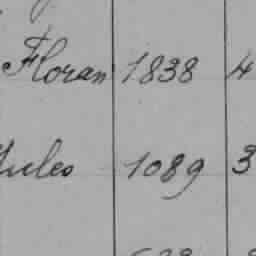 Floran 1838 4
Jules 1089 3